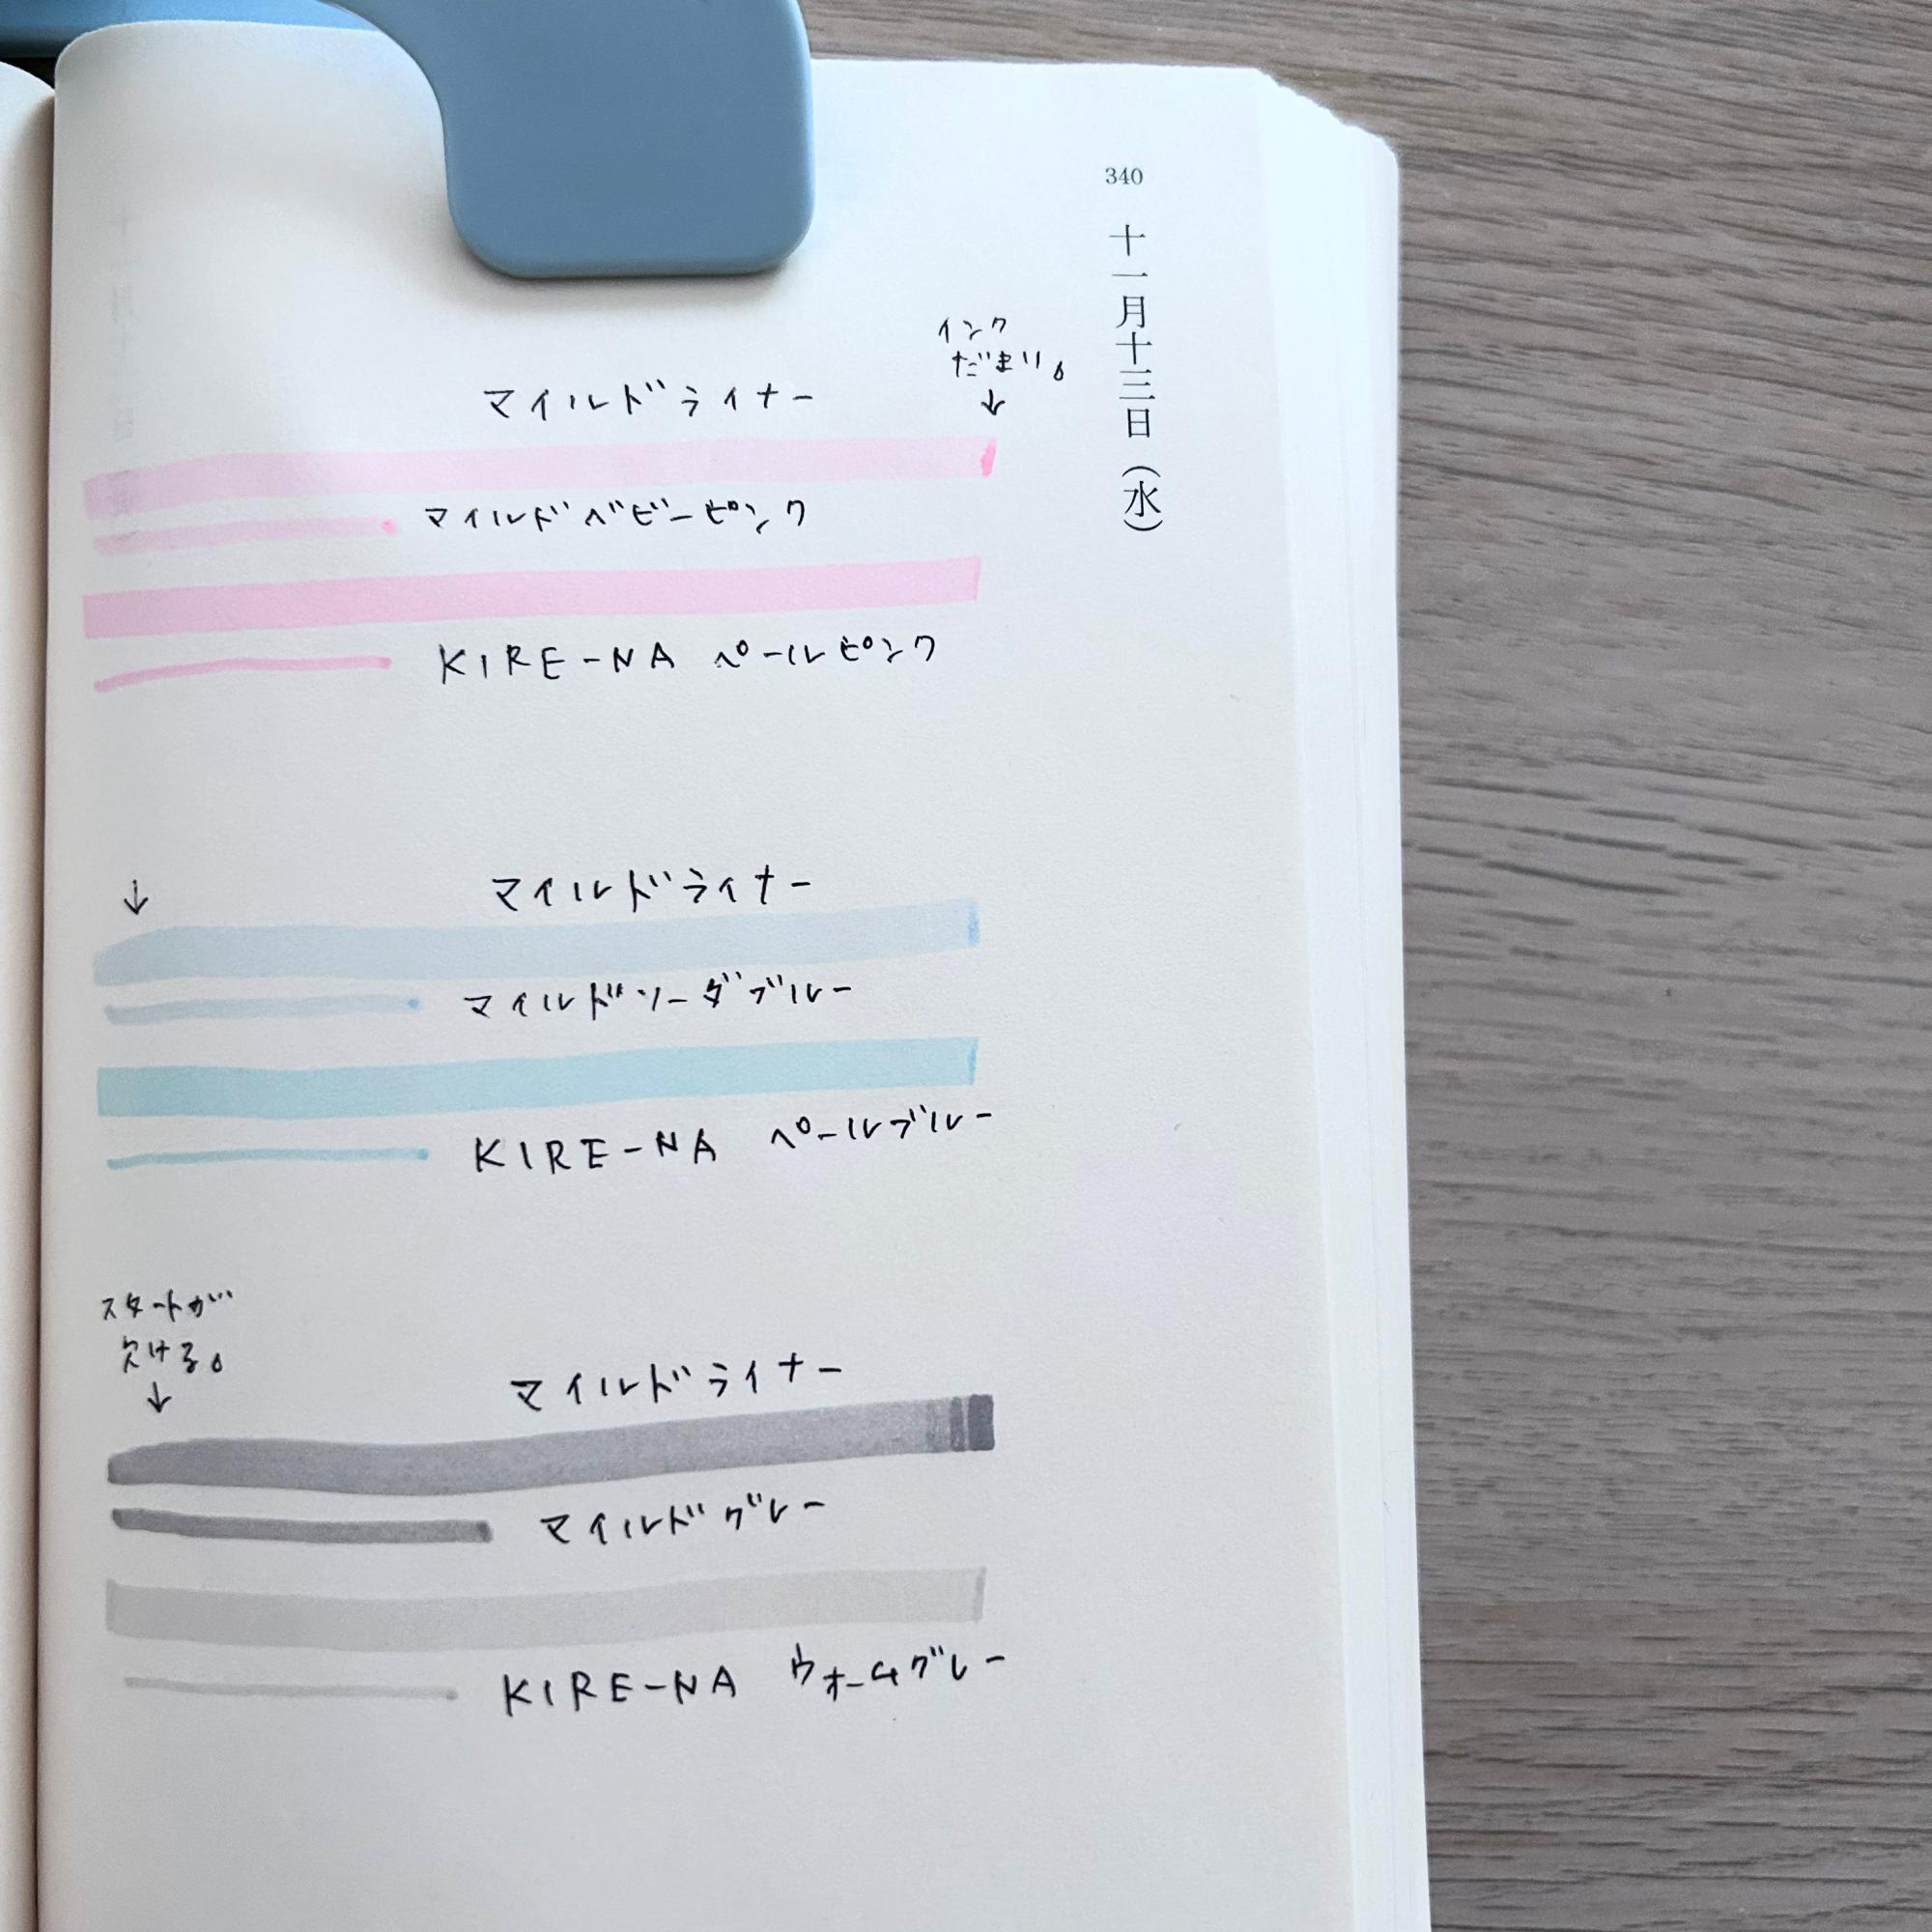 340
十一月十三日（水）
インク
だまり。
↓
マイルドライナー
マイルドベビーピンク
KIRE-NA ペールピンク
↓
マイルドライナー
マイルドソーダブルー
KIRE-NA ペールブルー
スタートが
欠ける。
↓
マイルドライナー
マイルドグレー
KIRE-NA ウォームグレー